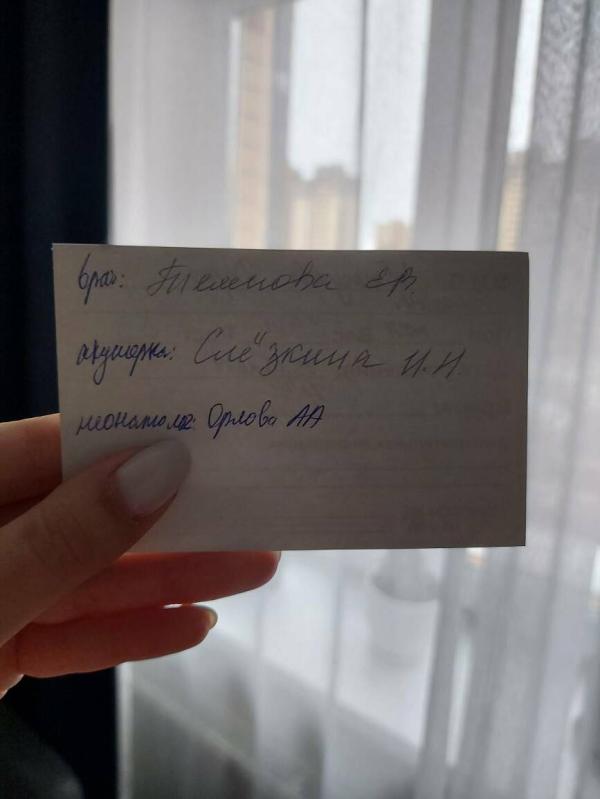 врач: Е.В.
акушерка: Слёзкина И.И.
неонатолог: Орлова АА